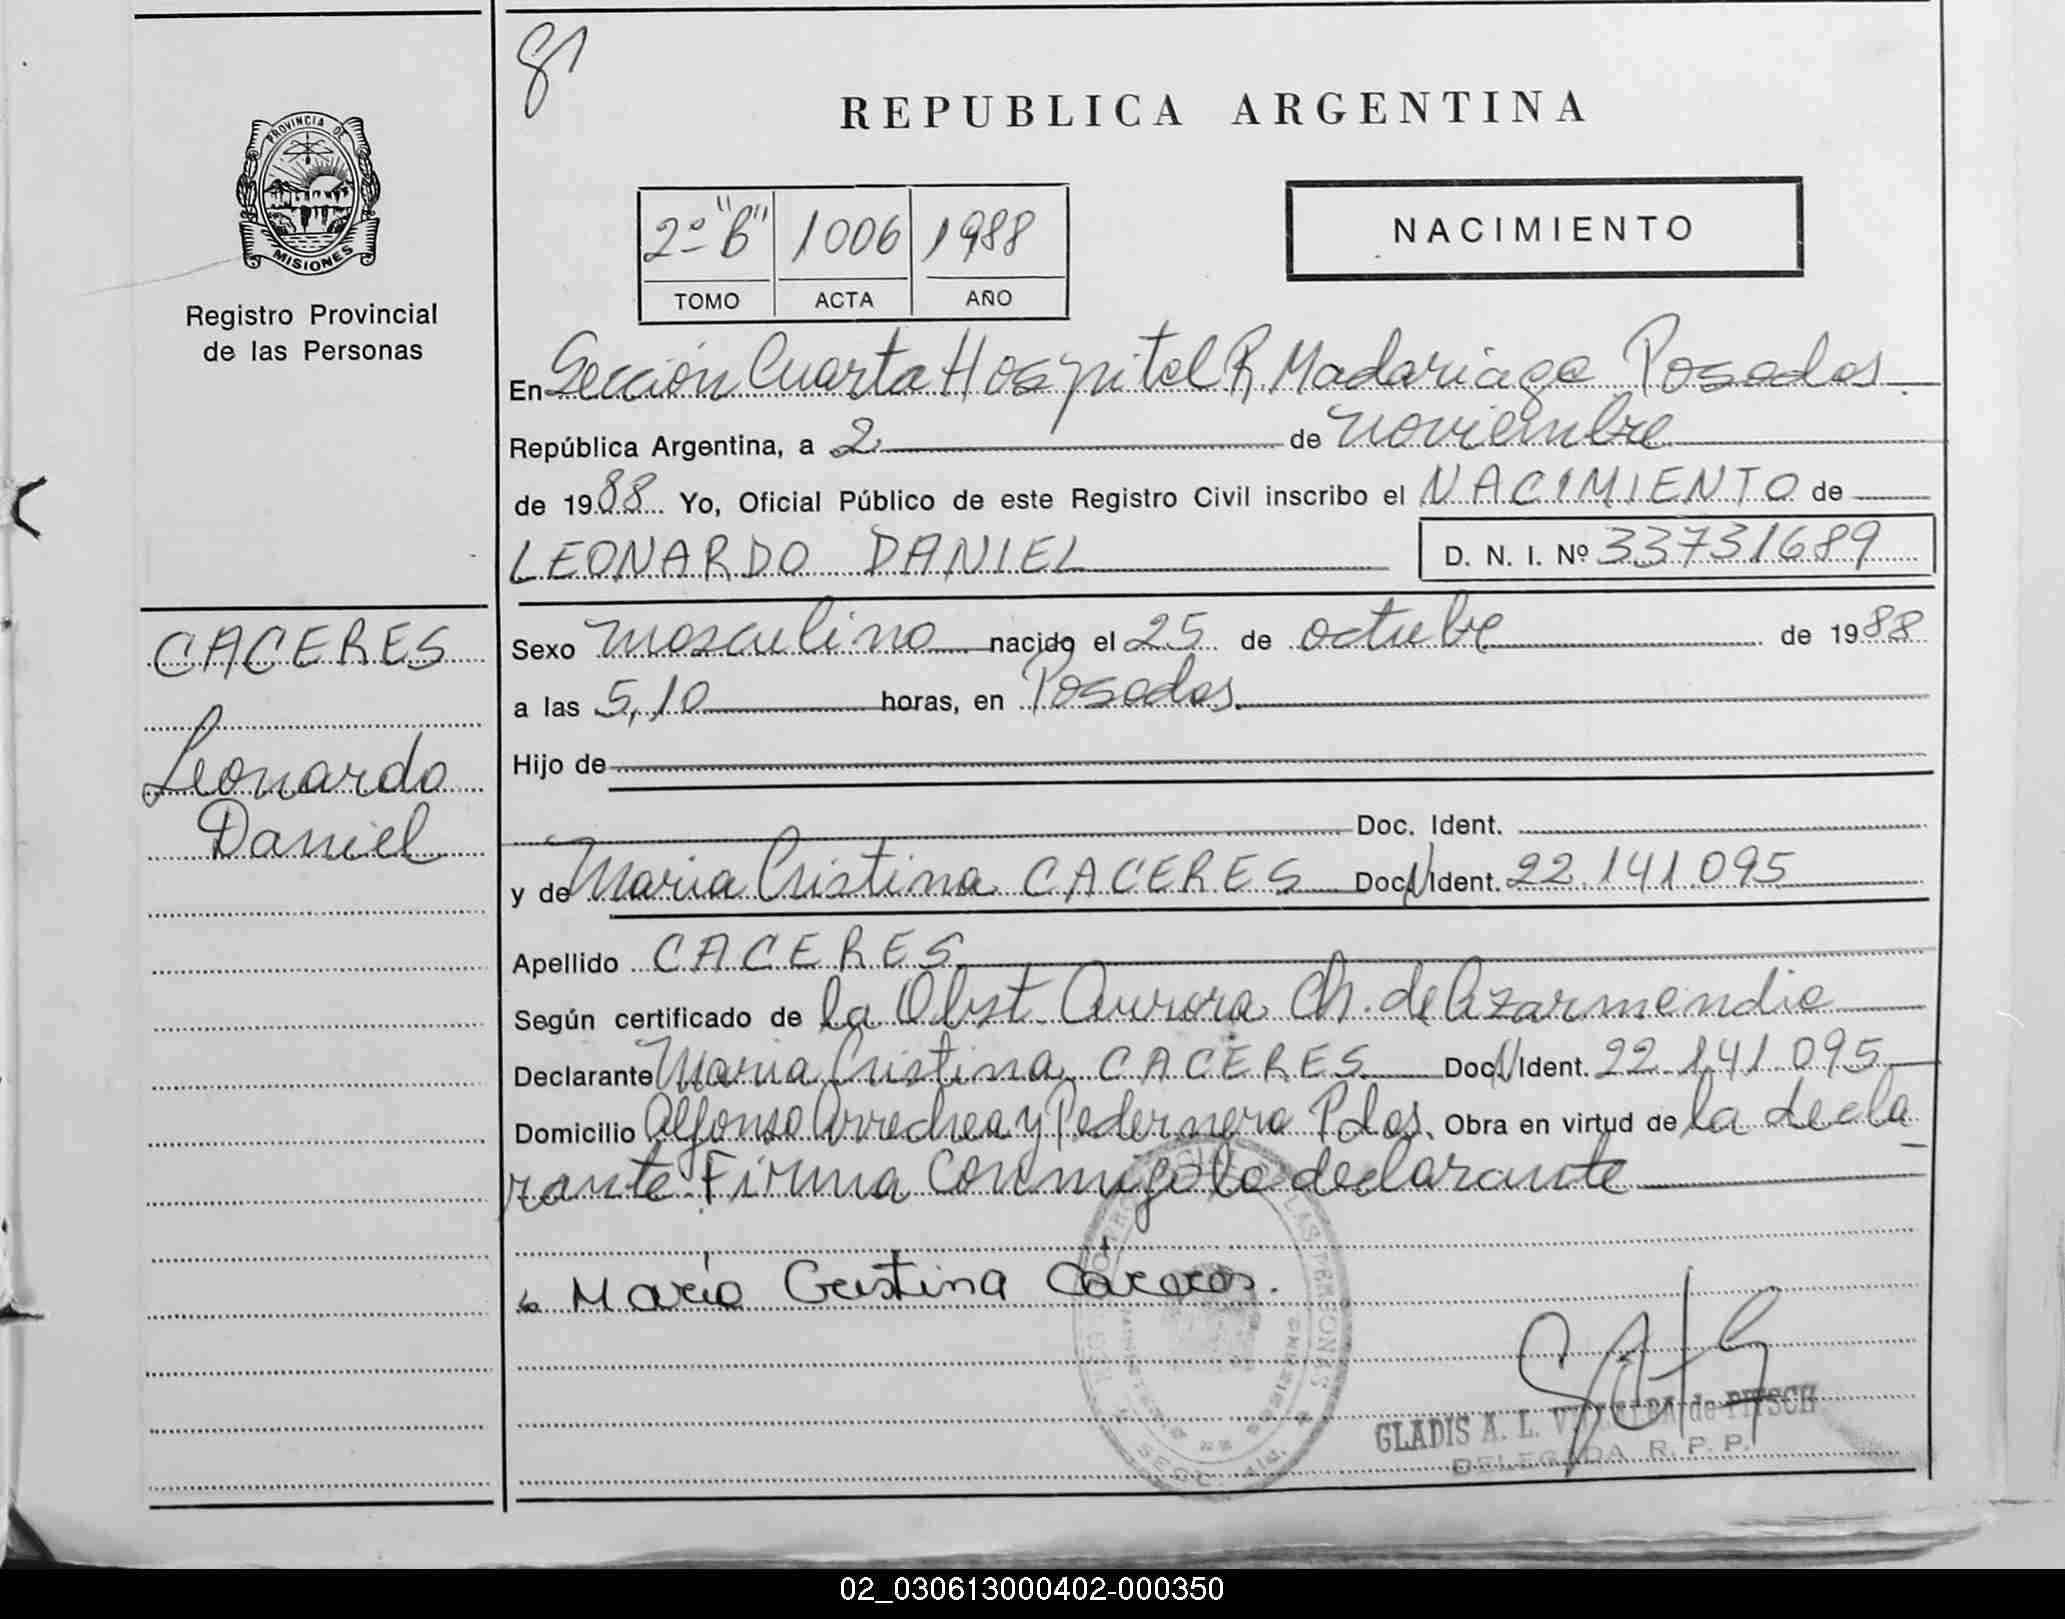 81
REPUBLICA ARGENTINA
PROVINCIA DE
MISIONES
Registro Provincial
de las Personas
2º "B" 1006 1988
TOMO ACTA AÑO
NACIMIENTO
En Sección Cuarta Hospital R. Madariaga Posadas
República Argentina, a 2 de noviembre
de 1988 Yo, Oficial Público de este Registro Civil inscribo el NACIMIENTO de
LEONARDO DANIEL D. N. I. Nº 33731689
CACERES
Leonardo
Daniel
Sexo masculino nacido el 25 de octubre de 1988
a las 5,10 horas, en Posadas.
Hijo de
Doc. Ident.
y de Maria Cristina CACERES Doc. N Ident. 22.141.095
Apellido CACERES
Según certificado de la Obst Aurora Ch. de Azarmendia
Declarante Maria Cristina CACERES Doc. N Ident. 22.141.095
Domicilio Alfonso Arrechea y Pedernera Pdas. Obra en virtud de la decla
rante. Firma conmigo la declarante
María Cristina Cáceres.
GLADIS A. L. de PITSCH
DELEGADA R. P. P.
02_030613000402-000350